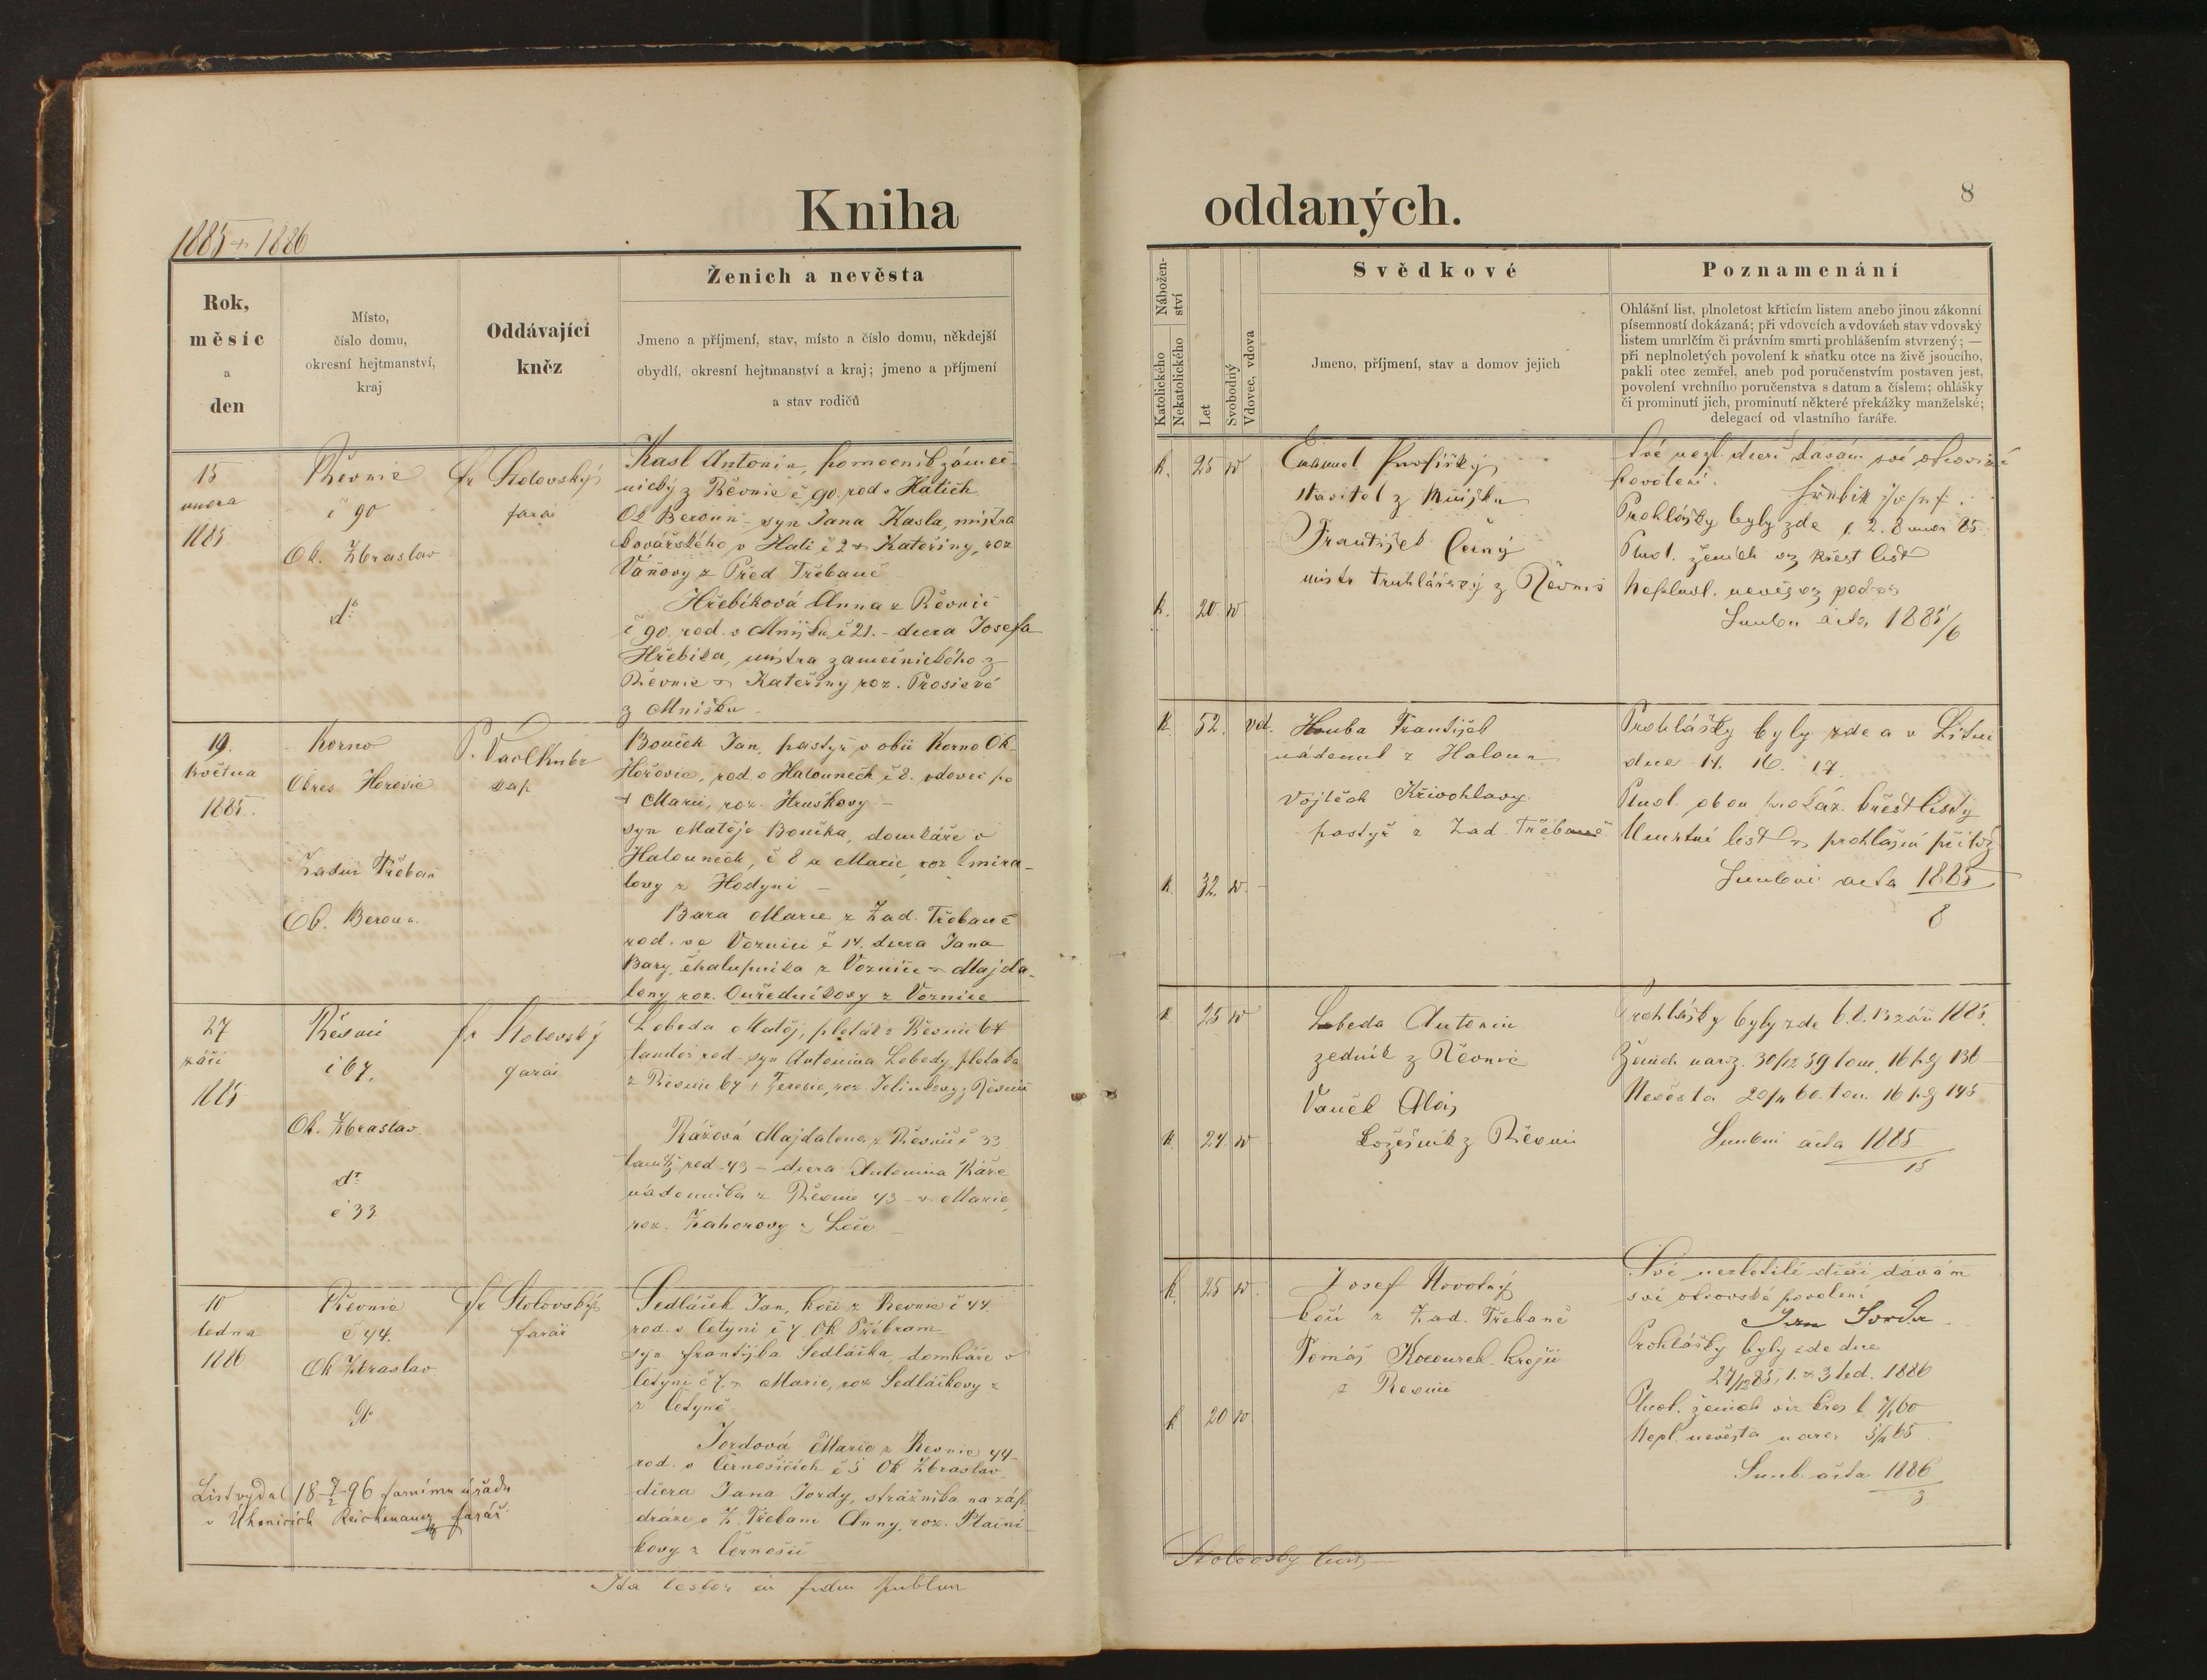 Kniha
oddaných.
8
1885 + 1886
Rok,
měsíc
a
den
Místo,
číslo domu,
okresní hejtmanství,
kraj
Oddávající
kněz
Ženich a nevěsta
Jmeno a příjmení, stav, místo a číslo domu, někdejší
obydlí, okresní hejtmanství a kraj; jmeno a příjmení
a stav rodičů
Nábožen-
ství
Katolického
Nekatolického
Let
Svobodný
Vdovec, vdova
Svědkové
Jmeno, příjmení, stav a domov jejich
Poznamenání
Ohlášní list, plnoletost křticím listem anebo jinou zákonní
písemností dokázaná; při vdovcích a vdovách stav vdovský
listem umrlčím či právním smrti prohlášením stvrzený; —
při neplnoletých povolení k sňatku otce na živě jsoucího,
pakli otec zemřel, aneb pod poručenstvím postaven jest,
povolení vrchního poručenstva s datum a číslem; ohlášky
či prominutí jich, prominutí některé překážky manželské;
delegací od vlastního faráře.
15
února
1885
Řevnic
č 90
Ok. Zbraslav
do
Fr Stolovský
farář
Kasl Antonín, pomocník zámeč-
nický z Řevnic č 90 rod. v Hatích
Ok Beroun - syn Jana Kasla, mistra
kovářského v Hati č 2 + Kateřiny, roz
Váňovy z Před Třebaně
Hřebíková Anna z Řevnic
č 90 rod. v Mníšku č 21. - dcera Josefa
Hřebíka, mistra zamečnického z
Řevnic + Kateřiny roz. Prosicvé
z Mníšku -
k. 25 w
k. 20 w
Emanuel
stavitel z Mníšku
František Černý
mistr truhlářský z Řevnic
Své nezl. dceři dávám své otcovské
povolení.
Hřebík Josef.
Prohlášky byly zde 1. 2. 8 unor 85
Plnol. ženich viz křest list
Neplnol. nevěs viz podpis
Snubni acta 1885/6
19.
května
1885.
Korno
Okres Horovic
Zadní Třebaň
Ok. Beroun.
P. Vacl Kubr
kap
Bouček Jan, pastýř v obci Korno Ok-
Hořovic, rod. v Halouněch č 8. vdovec po
+ Marii, roz. Hruškovy -
syn Matěje Boučka, domkáře v
Halouněch, č 8 a Marie, roz Čmira-
lovy z Hodyni -
Bara Marie z Zad. Třebaně
rod. ve Voznici č 14. dcera Jana
Bary, chalupníka z Voznice + Majda-
leny roz. Ouředníkovy z Voznice
k. 52. vd.
k. 32. w. -
Houba František
nádenník z Haloun
Vojtěch Křivohlavy
pastýř z Zad. Třebaně
Prohlášky byly zde a v Litni
dne 14. 16. 17
Plnol. obou prokáz. křest listy
Umrtní list + prohlášní při tož
Snubní acta 1885
8
27
září
1885
Řevnic
č 67.
Ok. Zbraslav.
do
č 33
Fr Stolovský
farář
Lebeda Matěj, pletář z Řevnic 67
tamtéž rod - syn Antonína Lebedy, pletáka
z Řevnic 67 + Terezie, roz. Jelínkovy z Řevnic
Rážová Majdalena z Řevnic č 33
tamtéž rod - 43 - dcera Antonína Ráže
nádenníka z Řevnic 43 - + Marie,
roz. Záhorovy z Leče
k 25 w
k 24 w
Lebeda Antonín
zedník z Řevnic
Vaněk Alois
kožešník z Řevnic
Prohlášky byly zde 6. 8. 13 září 1885.
Ženich naroz. 30/12 59 tom. 16 pg 136 -
Nevěsta 20/11 60. tom. 16 pg 145
Snubní acta 1885
15
10
ledna
1886
Řevnic
č 44.
Ok Zbraslav
do
Fr Stolovský
farář
Sedláček Jan, kočí z Řevnic č 44.
rod. v Cetyni č 7 Ok Příbram
syn Františka Sedláčka, domkáře v
Cetyni č 7. + Marie, roz Sedláčkovy z
z Cetyně
Jordová Marie z Řevnic 44 -
rod. v Černošicích č 5 Ok Zbraslav
dcera Jana Jordy, strážníka na záp
dráze v Z. Třebani Anny, roz. Ptační-
kovy z Černošic
k. 25 w.
k 20 w.
Josef Novotný
kočí z Zad. Třebaně
Tomáš Kocourek krejčí
z Řevnic
Své nezletilé dceři dávám
své otcovské povolení
Jan Jorda
Prohlášky byly zde dne
27/12 85, 1. + 3 led. 1886
Plnol. ženich viz kres l. 7/1 60
Nepl. nevěsta naroz 5/11 65
Snub. acta 1886
3
List vydal 18 7/2 96 farnímu úřadu
v Úhonicích Reichenauer farář
Ita testor in fidem publicam
Stolovsky